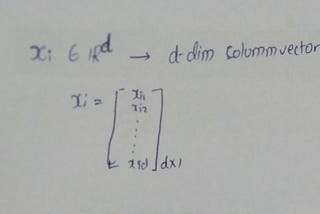 xi ∈ ℝd → d-dim Colummvector
xi = [ xi1
xi2
⋮
xid ] dx1